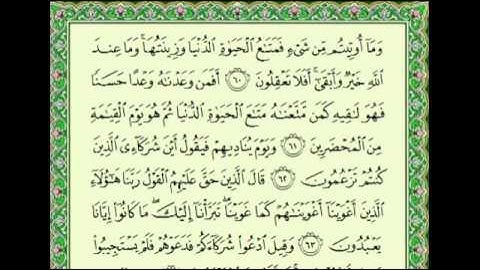 وَمَآ أُوتِيتُم مِّن شَىْءٍ فَمَتَـٰعُ ٱلْحَيَوٰةِ ٱلدُّنْيَا وَزِينَتُهَا ۚ وَمَا عِندَ
ٱللَّهِ خَيْرٌ وَأَبْقَىٰٓ ۚ أَفَلَا تَعْقِلُونَ ٦٠ أَفَمَن وَعَدْنَـٰهُ وَعْدًا حَسَنًا
فَهُوَ لَـٰقِيهِ كَمَن مَّتَّعْنَـٰهُ مَتَـٰعَ ٱلْحَيَوٰةِ ٱلدُّنْيَا ثُمَّ هُوَ يَوْمَ ٱلْقِيَـٰمَةِ
مِنَ ٱلْمُحْضَرِينَ ٦١ وَيَوْمَ يُنَادِيهِمْ فَيَقُولُ أَيْنَ شُرَكَآءِىَ ٱلَّذِينَ
كُنتُمْ تَزْعُمُونَ ٦٢ قَالَ ٱلَّذِينَ حَقَّ عَلَيْهِمُ ٱلْقَوْلُ رَبَّنَا هَـٰٓؤُلَآءِ
ٱلَّذِينَ أَغْوَيْنَآ أَغْوَيْنَـٰهُمْ كَمَا غَوَيْنَا ۖ تَبَرَّأْنَآ إِلَيْكَ ۖ مَا كَانُوٓا۟ إِيَّانَا
يَعْبُدُونَ ٦٣ وَقِيلَ ٱدْعُوا۟ شُرَكَآءَكُمْ فَدَعَوْهُمْ فَلَمْ يَسْتَجِيبُوا۟